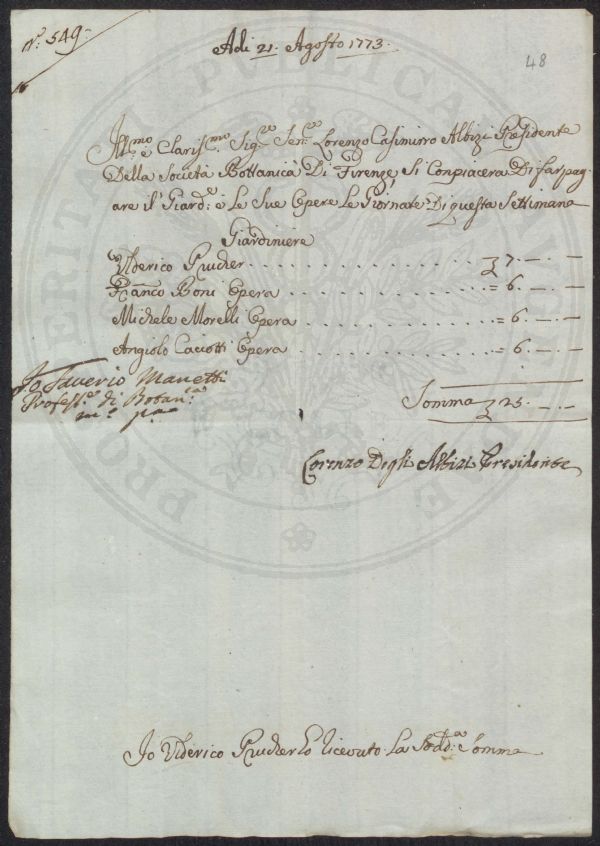 N.º 549
48
Adi 21. Agosto 1773.
Ill.mo e Clariss.mo Sig.re Sen.re Lorenzo Casimirro Albizi Presidente
Della Società Bottanica Di Firenze Si Conpiacera Di far pag-
are il Giard.e e Le Sue Opere Le Giornate Di questa Settimana
Giardiniere
Ulderico Prucher 7. — . —
Franco Boni Opera = 6. — . —
Michele Morelli Opera = 6. — . —
Angiolo Caciotti Opera = 6. — . —
Io Saverio Manetti
Profess.re di Botan.ca
m.o p.a
Somma 25. — . —
Lorenzo Degli Albizi Presidente
Io Ulderico Prucher ho ricevuto La Sodd.a Somma
PRO MERITATI PVBLICA